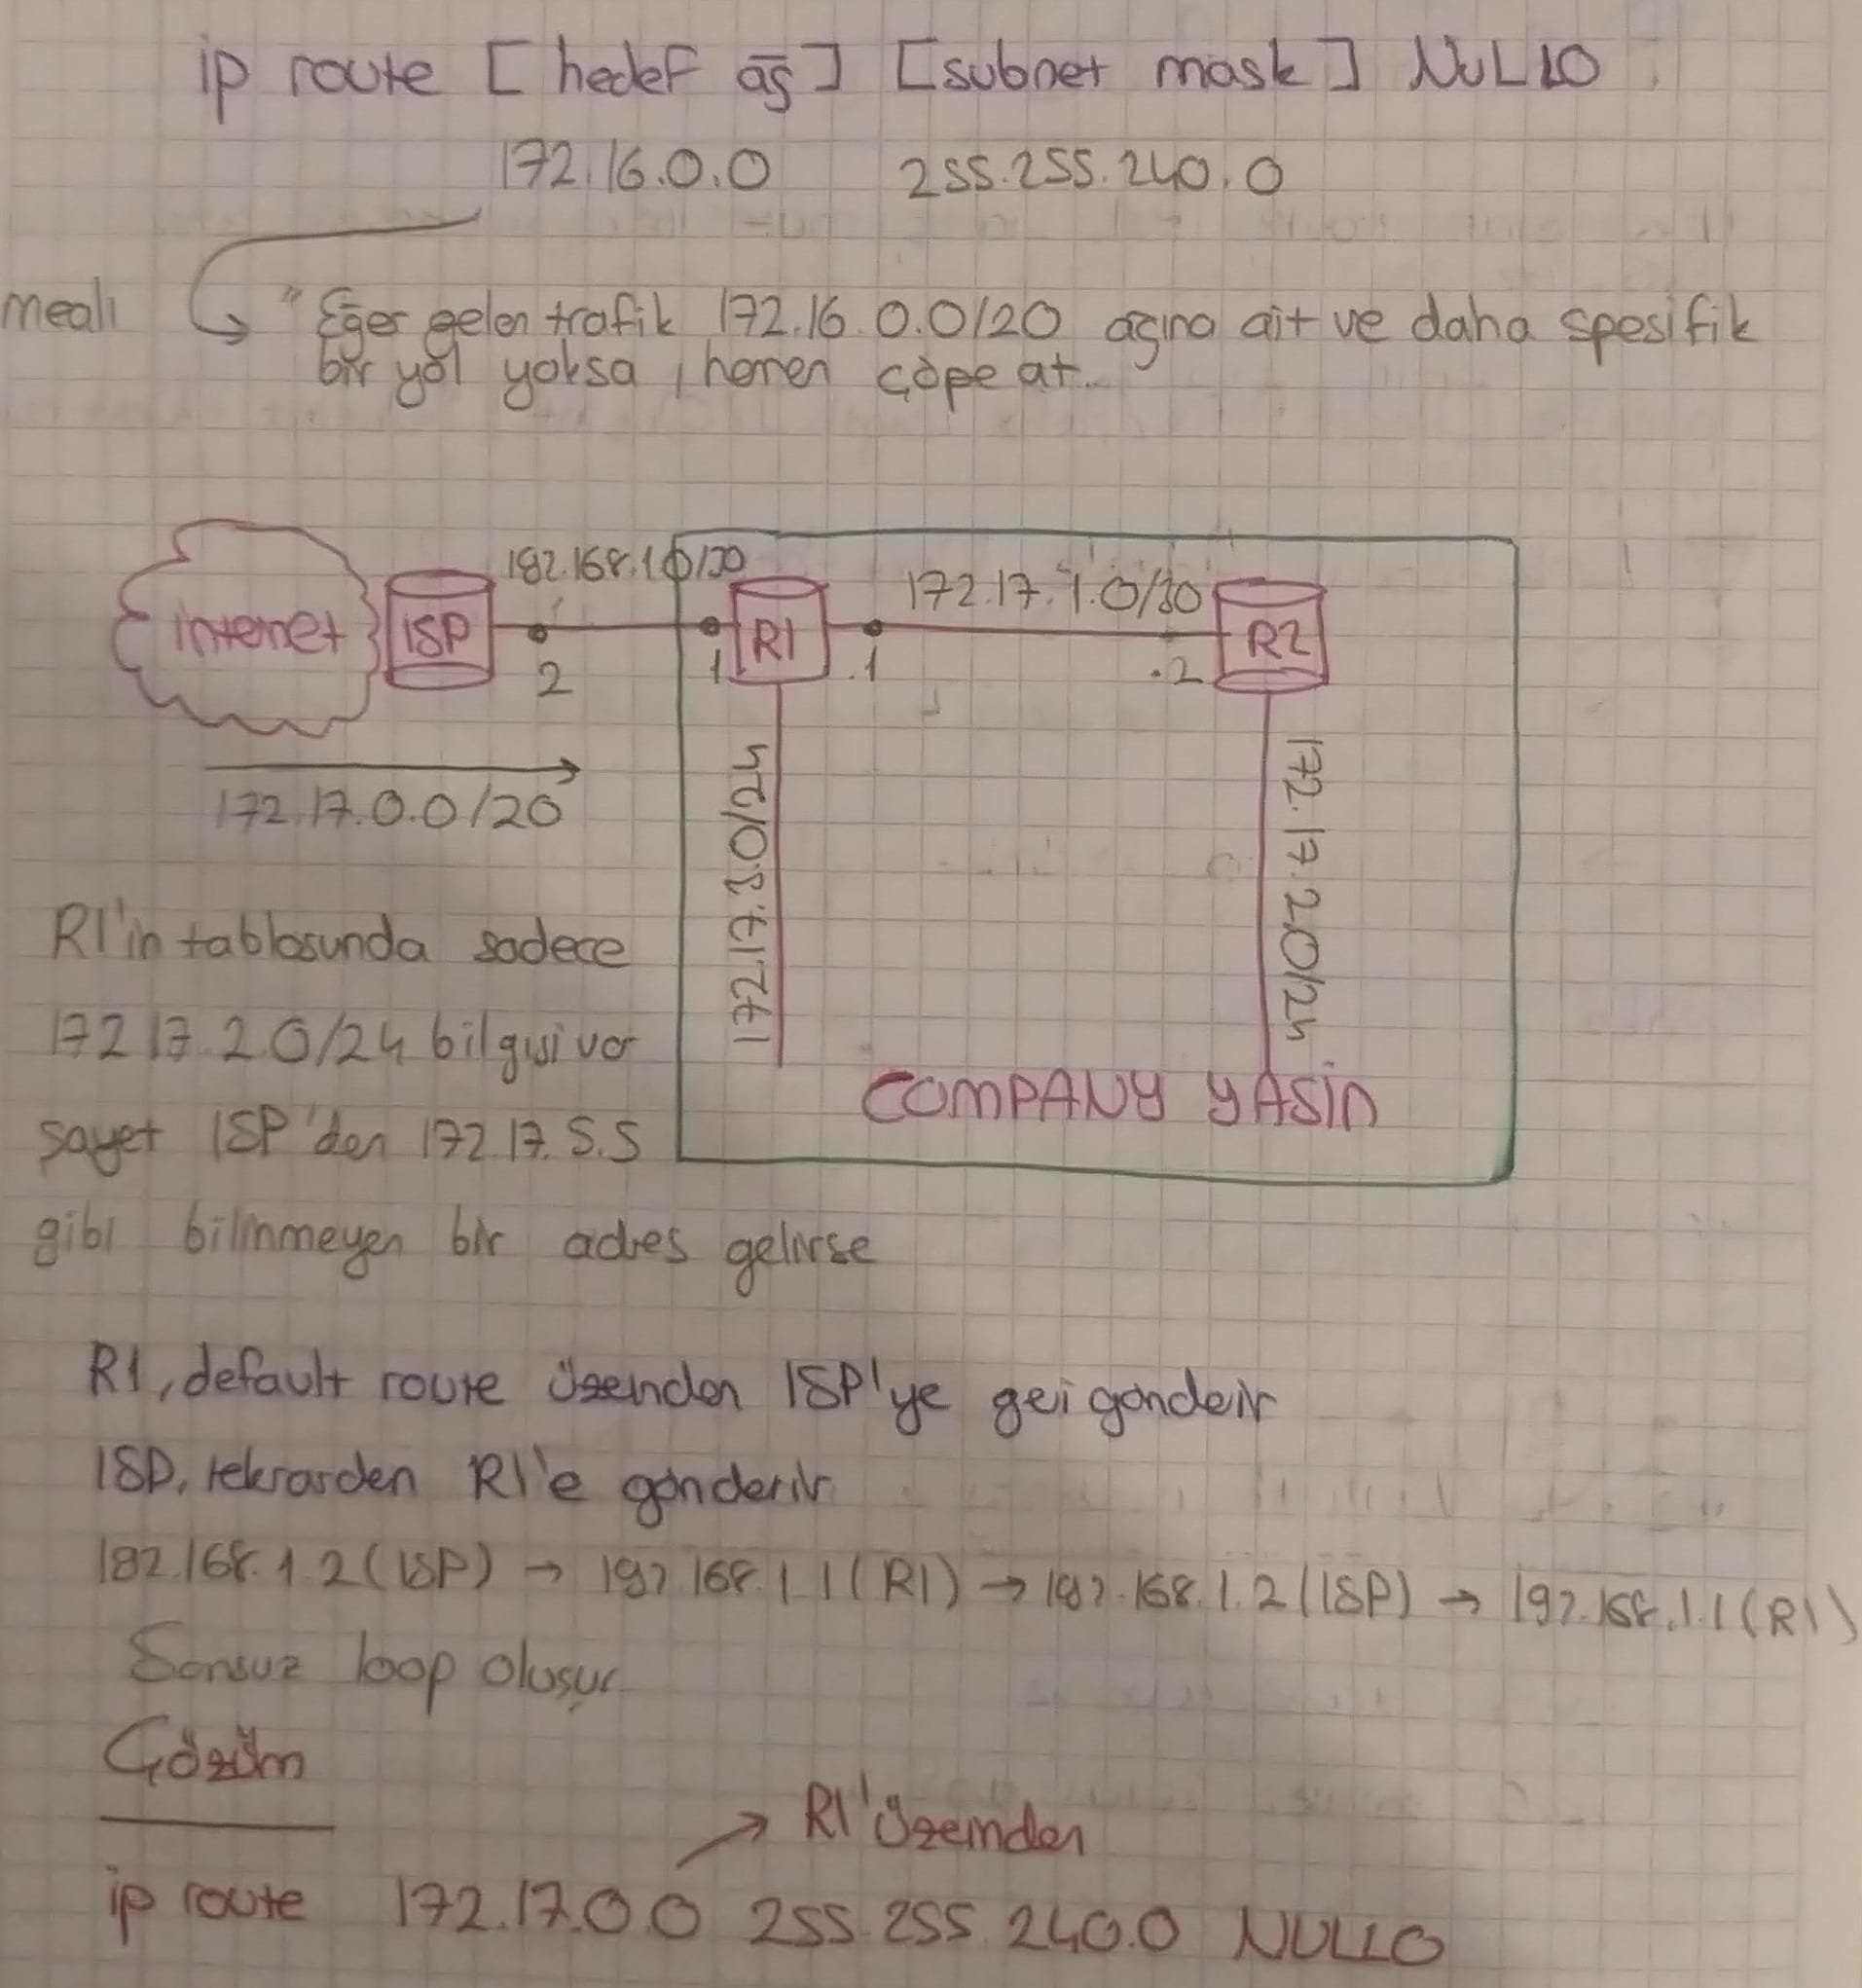 ip route [hedef ağ] [subnet mask] NULL0
172.16.0.0 255.255.240.0
meali
"Eğer gelen trafik 172.16.0.0/20 ağına ait ve daha spesifik
bir yol yoksa, hemen çöpe at..
192.168.1.0/30
172.17.1.0/30
internet ISP R1 R2
2 1 .1 .2
172.17.0.0/20
172.17.3.0/24
172.17.2.0/24
COMPANY YASİN
R1'in tablosunda sadece
172 17.2.0/24 bilgisi var
şayet ISP'den 172.17.5.5
gibi bilinmeyen bir adres gelirse
R1, default route üzeinden ISP'ye gei gönderir
ISP, tekrarden R1'e gönderir
192.168.1.2 (ISP) → 192.168.1.1 (R1) → 192.168.1.2 (ISP) → 192.168.1.1 (R1)
Sonsuz loop oluşur
Çözüm
R1 üzeinden
ip route 172.17.0.0 255.255.240.0 NULL0